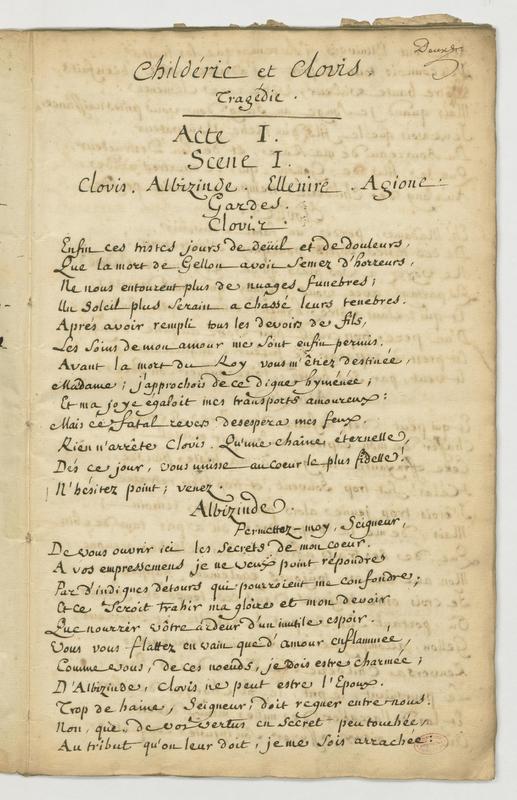 Childéric et Clovis.
Tragédie.
Acte I.
Scene I.
Clovis. Albizinde. Ellenire. Agione.
Gardes.
Clovis.
Enfin ces tristes jours de deüil et de douleurs,
Que la mort de Gellon avoit semez d'horreurs,
Ne nous entourent plus de nuages funebres;
Un Soleil plus serain a chassé leurs tenebres.
Aprés avoir rempli tous les devoirs de fils,
Les Soins de mon amour me sont enfin permis.
Avant la mort du Roy vous m'étiez destinée,
Madame; j'approchois de ce digne hyménée;
Et ma joye égaloit mes transports amoureux:
Mais ce fatal revers desespera mes feux.
Rien n'arrête Clovis. Qu'une chaîne éternelle,
Dés ce jour, vous unisse au coeur le plus fidelle!
N'hésitez point; venez.
Albizinde.
Permettez-moy, Seigneur,
De vous ouvrir ici les secrets de mon coeur.
A vos empressemens je ne veux point répondre
Par d'indignes détours qui pourroient me confondre;
Et ce seroit trahir ma gloire et mon devoir
Que nourrir vôtre ardeur d'un inutile espoir.
Vous vous flattez en vain que d'amour enflammée,
Comme vous, de ces noeuds, je dois estre charmée;
D'Albizinde, Clovis ne peut estre l'Epoux.
Trop de haine, Seigneur, doit regner entre nous.
Non, que, de vos vertus en secret peu touchée,
Au tribut qu'on leur doit, je me sois arrachée: